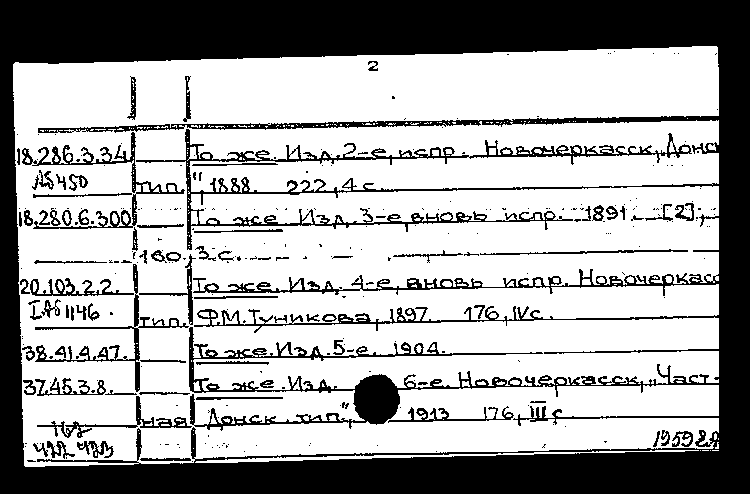 2
18.286.3.34 То же. Изд. 2-е, испр. Новочеркасск, „Донск
АБ450 тип.", 1888. 222, 4 с.
18.280.6.300 То же. Изд. 3-е, вновь испр. 1891. [2];
160, 3 с.
20.103.2.2. То же. Изд. 4-е, вновь испр. Новочеркасс
I АБ 1146. тип. Ф.М. Туникова, 1897. 176, IV с.
38.41.4.47. То же. Изд. 5-е. 1904.
37.45.3.8. То же. Изд. 6-е. Новочеркасск, „Част-
ная Донск. тип.", 1913 176, III с.
162
422 423